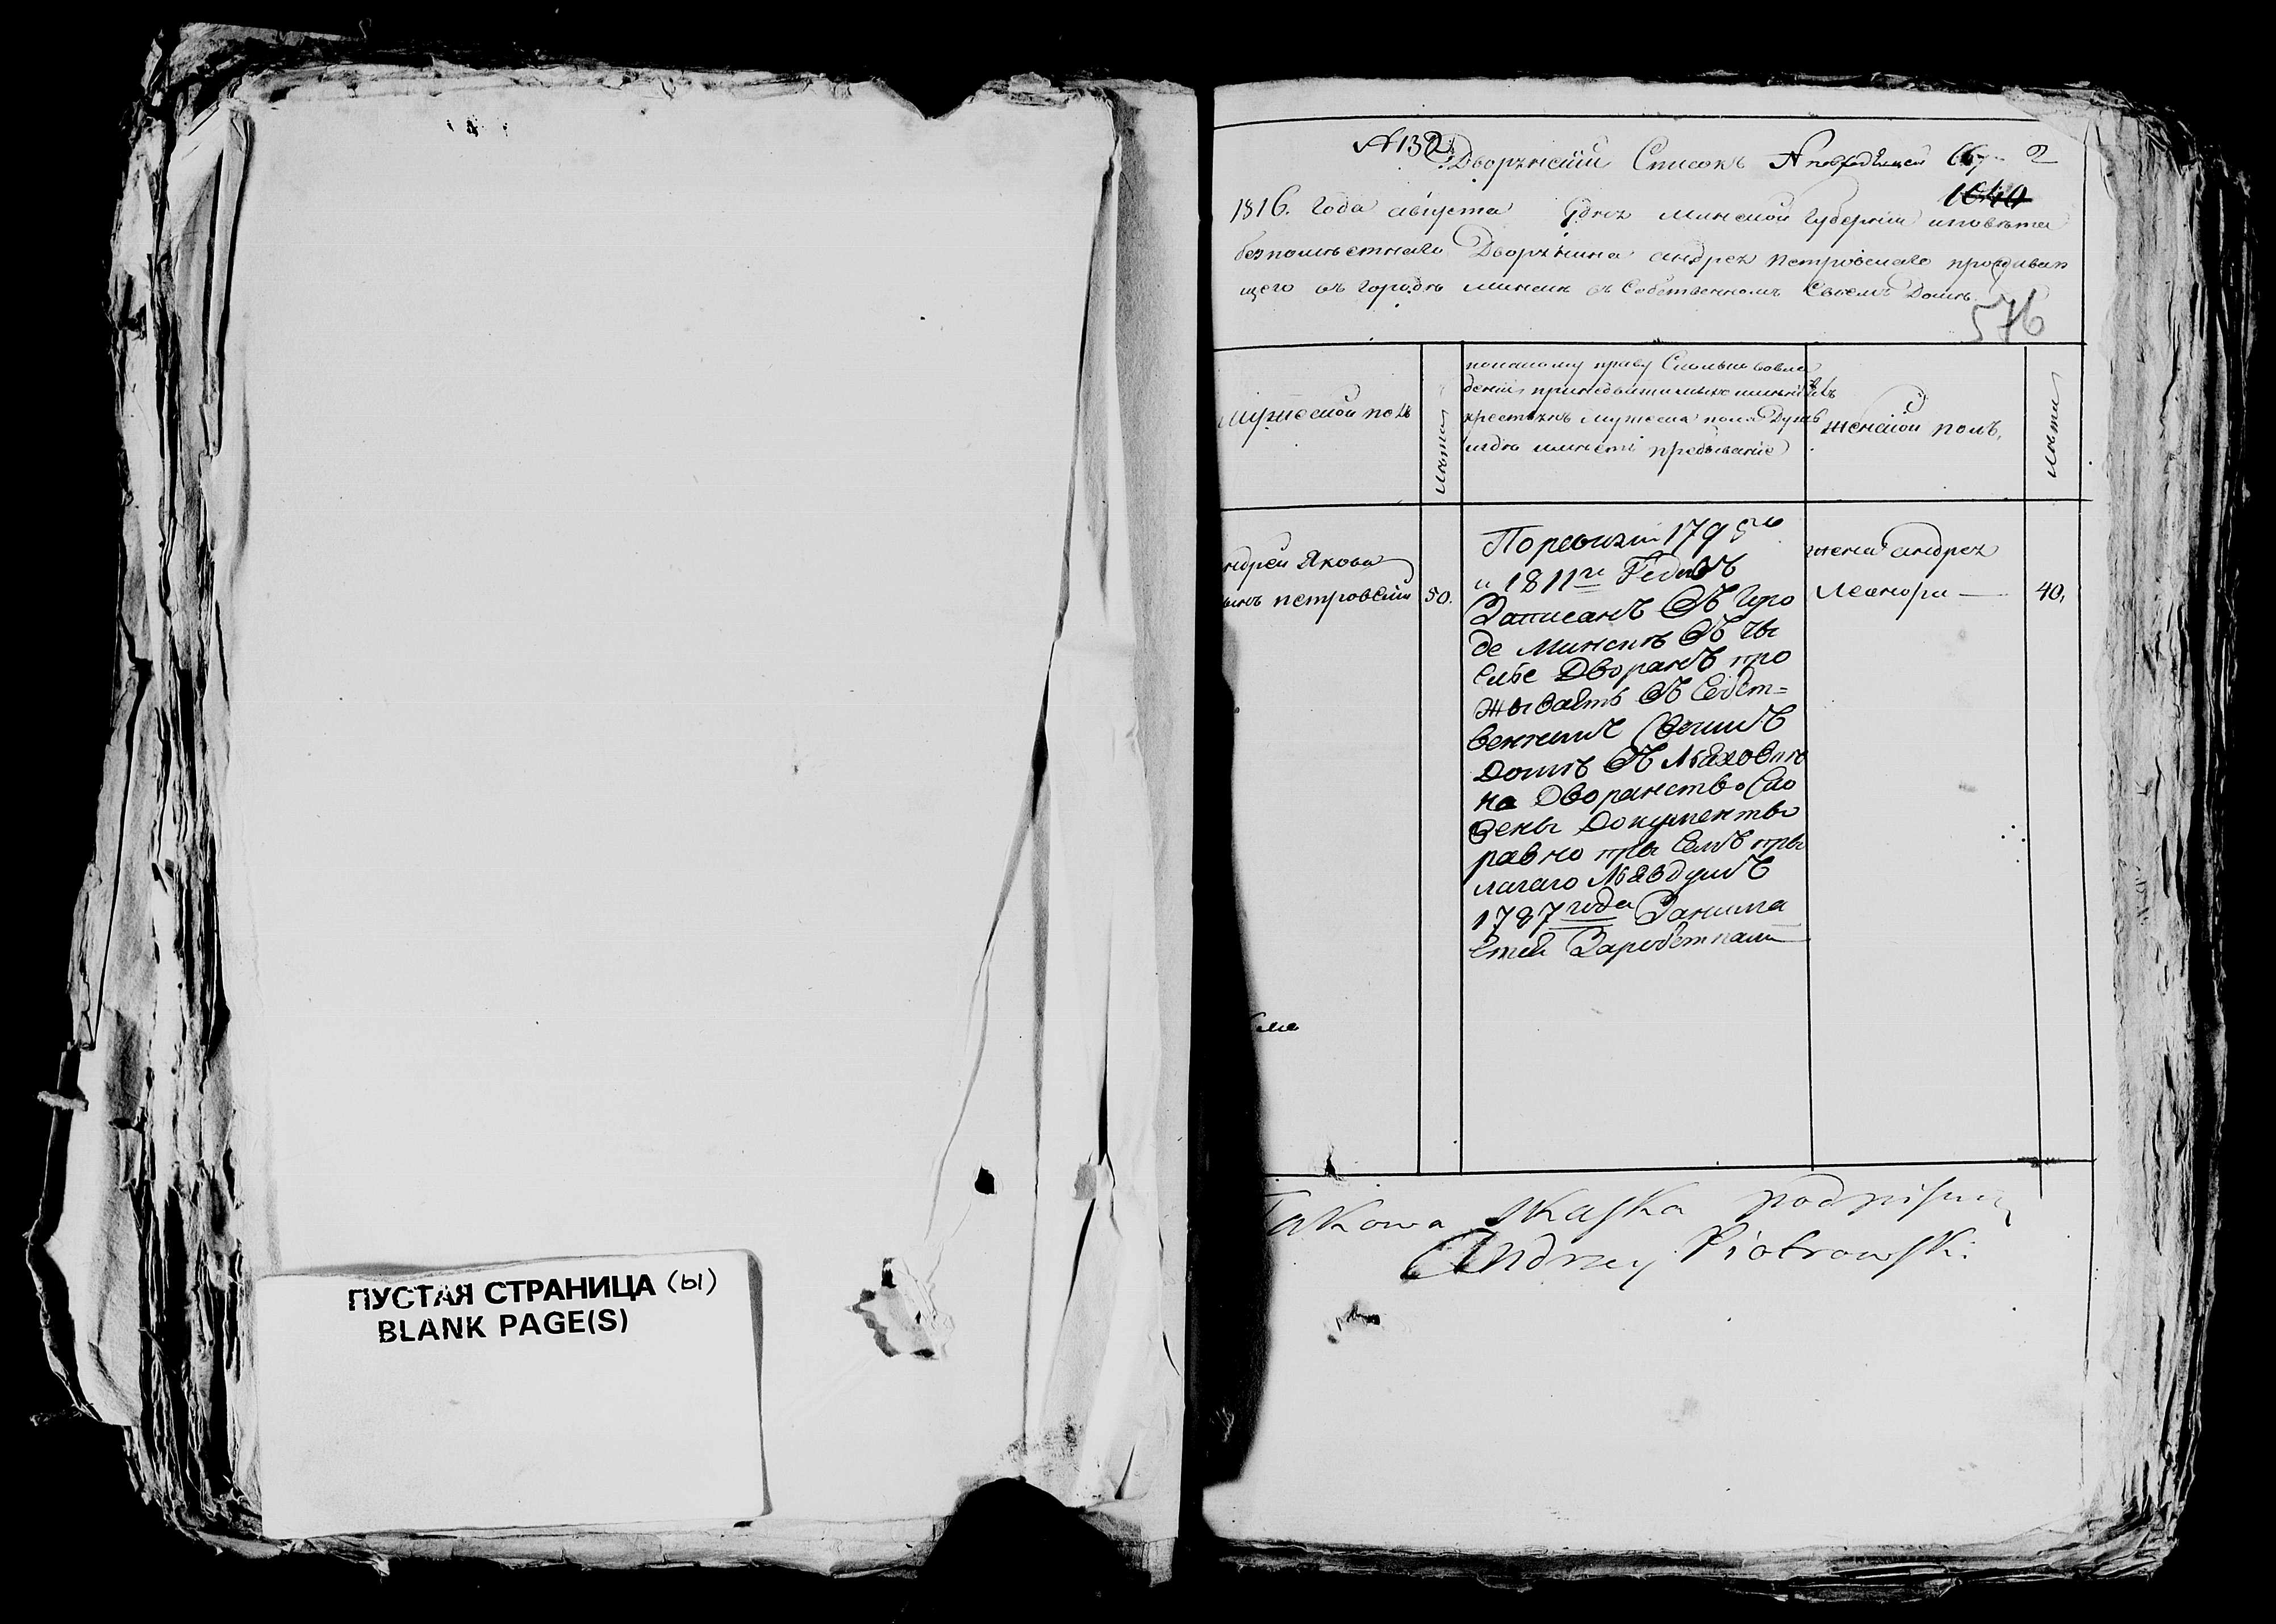 ПУСТАЯ СТРАНИЦА (ы)
BLANK PAGE(S)
№ 132
Дворянский Списокъ 2
1040
1816. Года августа дня минской Губерніи иповѣта
безпомѣстнаго Дворянина андрея петровскаго прожываю
щего въ городѣ минскѣ въ Собственномъ Своемъ Домѣ.
576
мужеской полъ
лѣта
покакому праву Сколько вовла
деніи принедвижимыхъ имѣній
крестьянъ мужеска пола Душъ
игдѣ имѣетъ пребываніе
женской полъ,
лѣта
ндрей Якова
сынъ петровскій
50.
Поревизіи 1795го
и 1811го Годовъ
Записанъ Въ Горо
де Минскѣ Въ чы
слѣ Дворанъ про
жываетъ Въ Собст=
венномъ Своимъ
Домѣ Въ
на Дворанство
Документы
равно пры Семъ пры
1787 года Занима
етса Заработками
жена андрея
Леанора —
40,
Takowa skaska podpisuię
Andrzey Piotrowski.